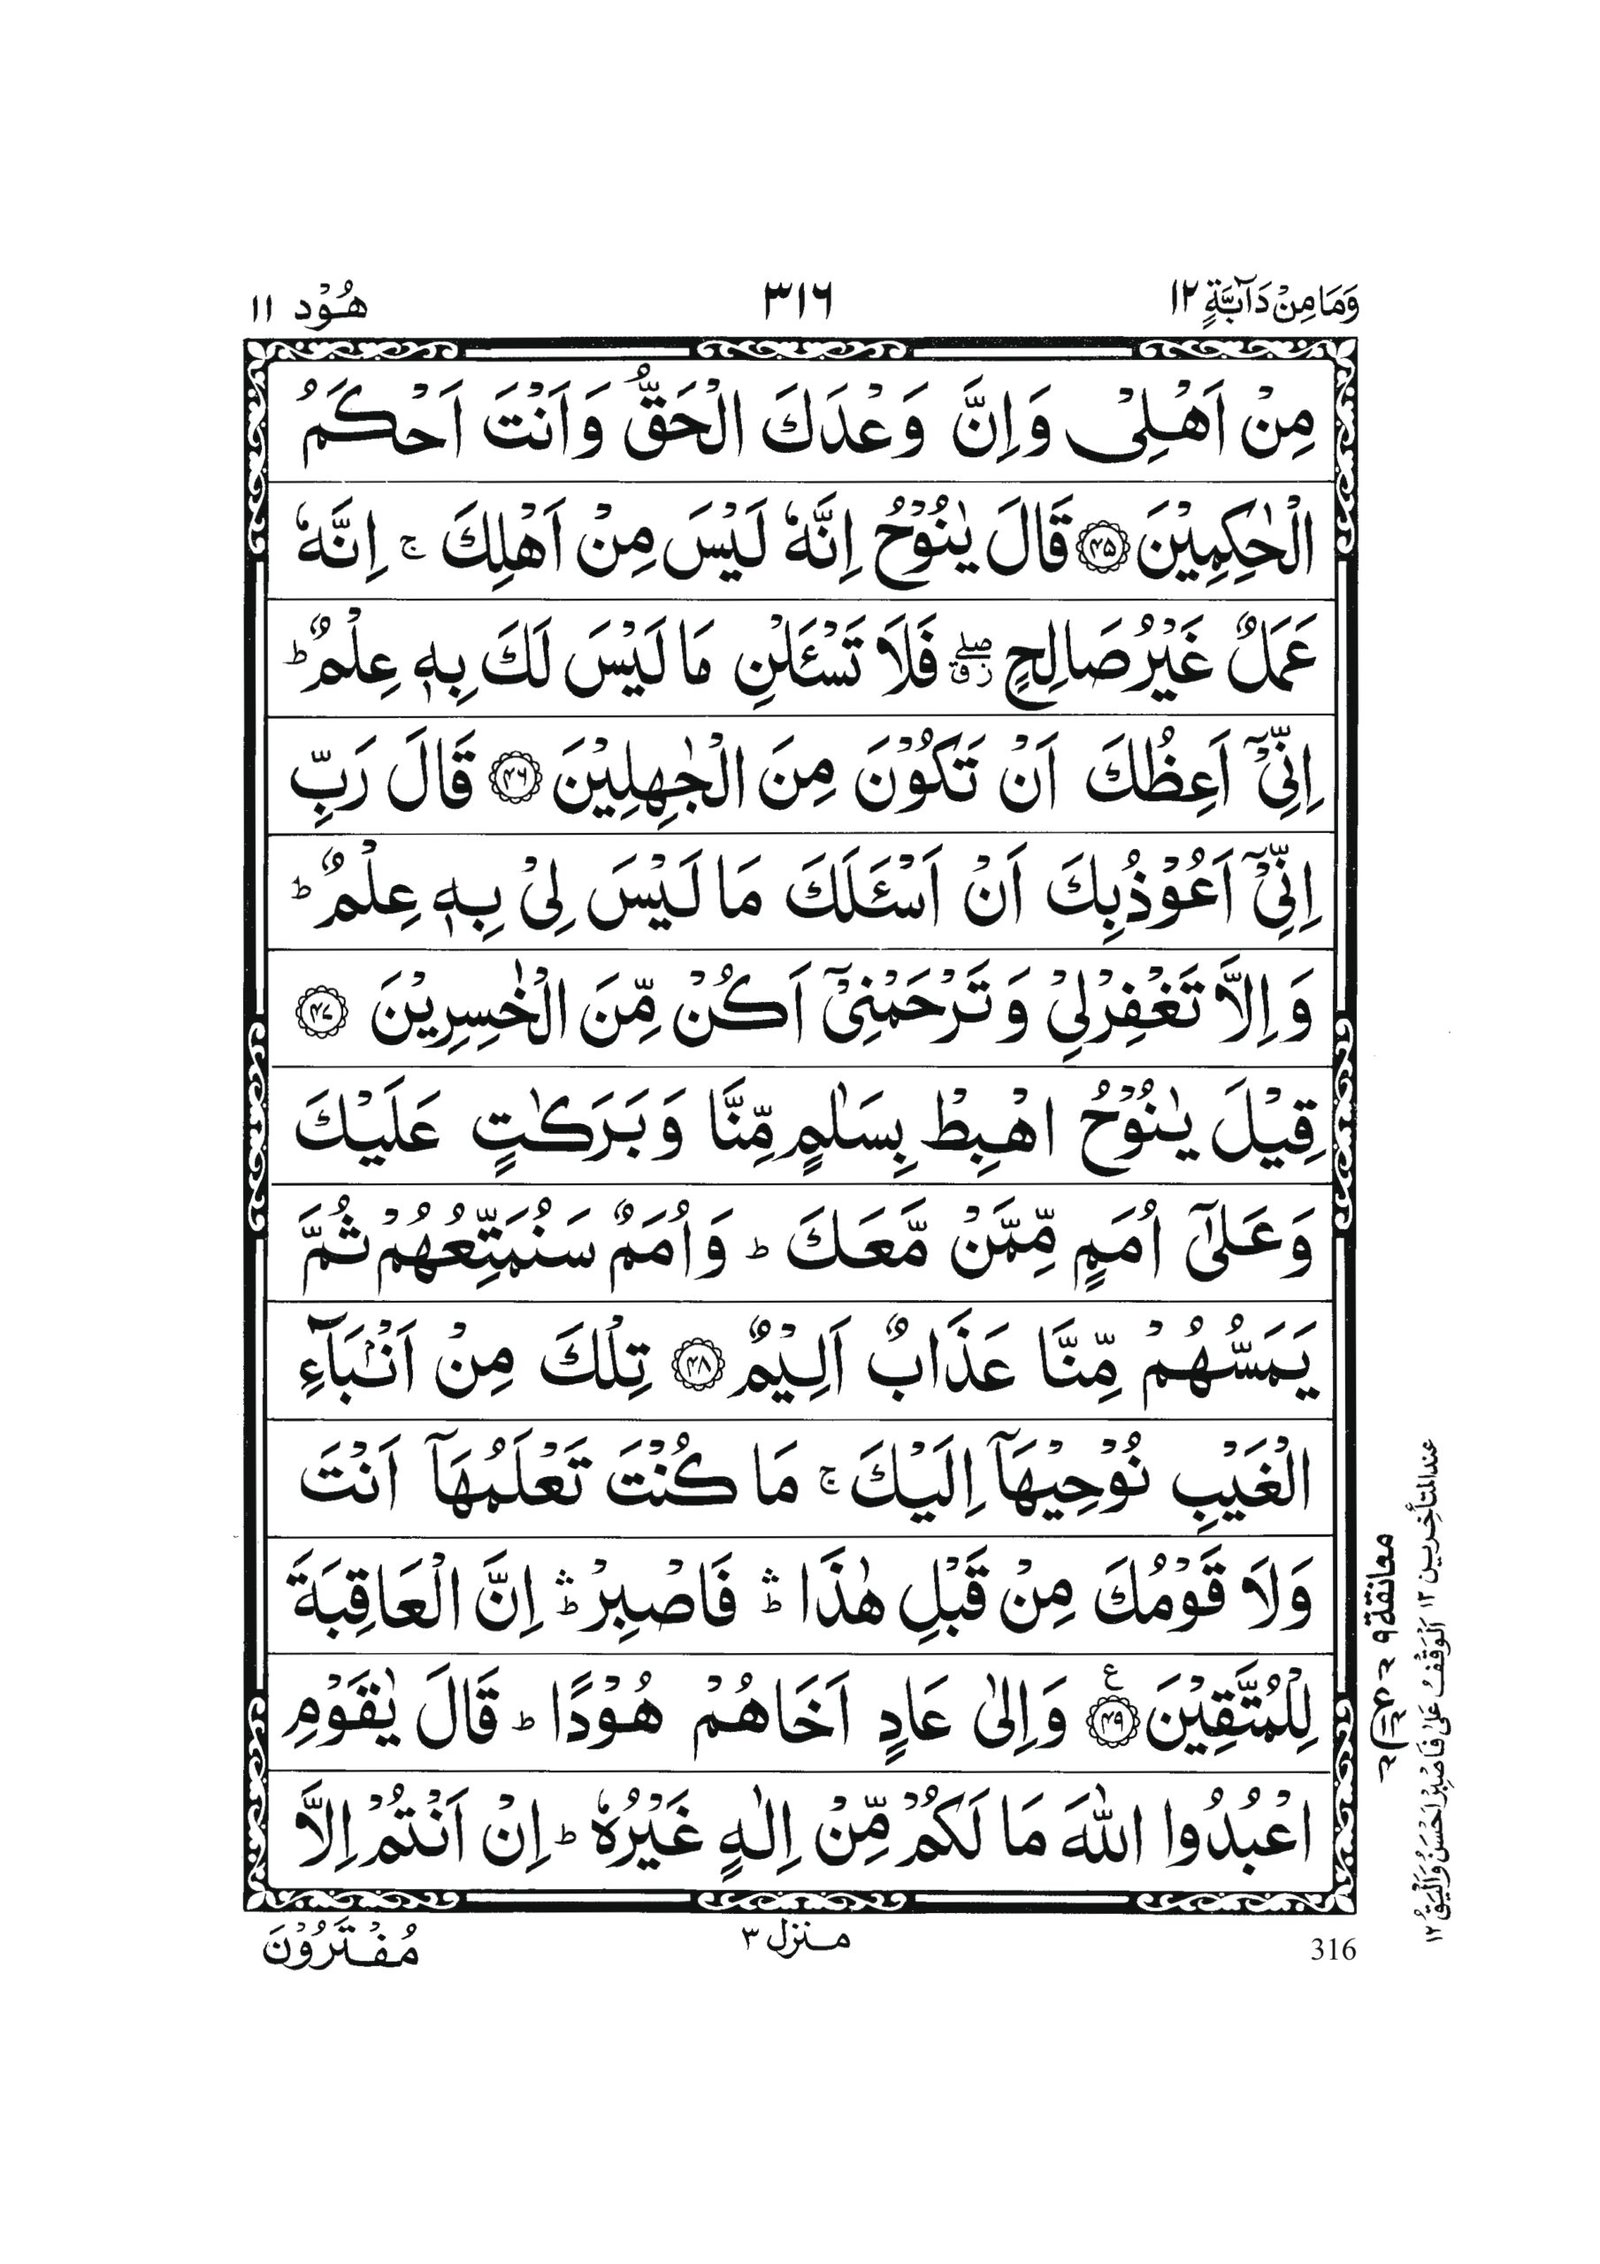 وَمَا مِنْ دَآبَّةٍ ١٢
٣١٦
هُوْد ١١
مِنْ اَهْلِىْ وَاِنَّ وَعْدَكَ الْحَقُّ وَاَنْتَ اَحْكَمُ
الْحٰكِمِيْنَ ۝٤٥ قَالَ يٰنُوْحُ اِنَّهٗ لَيْسَ مِنْ اَهْلِكَ ۚ اِنَّهٗ
عَمَلٌ غَيْرُ صَالِحٍ ۖ زق فَلَا تَسْـَٔلْنِ مَا لَيْسَ لَكَ بِهٖ عِلْمٌ ؕ
اِنِّىْۤ اَعِظُكَ اَنْ تَكُوْنَ مِنَ الْجٰهِلِيْنَ ۝٤٦ قَالَ رَبِّ
اِنِّىْۤ اَعُوْذُ بِكَ اَنْ اَسْـَٔلَكَ مَا لَيْسَ لِىْ بِهٖ عِلْمٌ ؕ
وَاِلَّا تَغْفِرْ لِىْ وَتَرْحَمْنِىْۤ اَكُنْ مِّنَ الْخٰسِرِيْنَ ۝٤٧
قِيْلَ يٰنُوْحُ اهْبِطْ بِسَلٰمٍ مِّنَّا وَبَرَكٰتٍ عَلَيْكَ
وَعَلٰٓى اُمَمٍ مِّمَّنْ مَّعَكَ ؕ وَاُمَمٌ سَنُمَتِّعُهُمْ ثُمَّ
يَمَسُّهُمْ مِّنَّا عَذَابٌ اَلِيْمٌ ۝٤٨ تِلْكَ مِنْ اَنْۢبَآءِ
الْغَيْبِ نُوْحِيْهَاۤ اِلَيْكَ ۚ مَا كُنْتَ تَعْلَمُهَاۤ اَنْتَ
وَلَا قَوْمُكَ مِنْ قَبْلِ هٰذَا ۛؕ فَاصْبِرْ ۛؕ اِنَّ الْعَاقِبَةَ
لِلْمُتَّقِيْنَ ۝٤٩ ع وَاِلٰى عَادٍ اَخَاهُمْ هُوْدًا ؕ قَالَ يٰقَوْمِ
اعْبُدُوا اللّٰهَ مَا لَكُمْ مِّنْ اِلٰهٍ غَيْرُهٗ ؕ اِنْ اَنْتُمْ اِلَّا
معانقة ٩
عند المتأخرين ١٢ اَلْوَقْفُ عَلٰى فَاصْبِرْ اَحْسَنُ وَاَلْيَقُ ١٢
مُفْتَرُوْنَ
منزل ٣
316